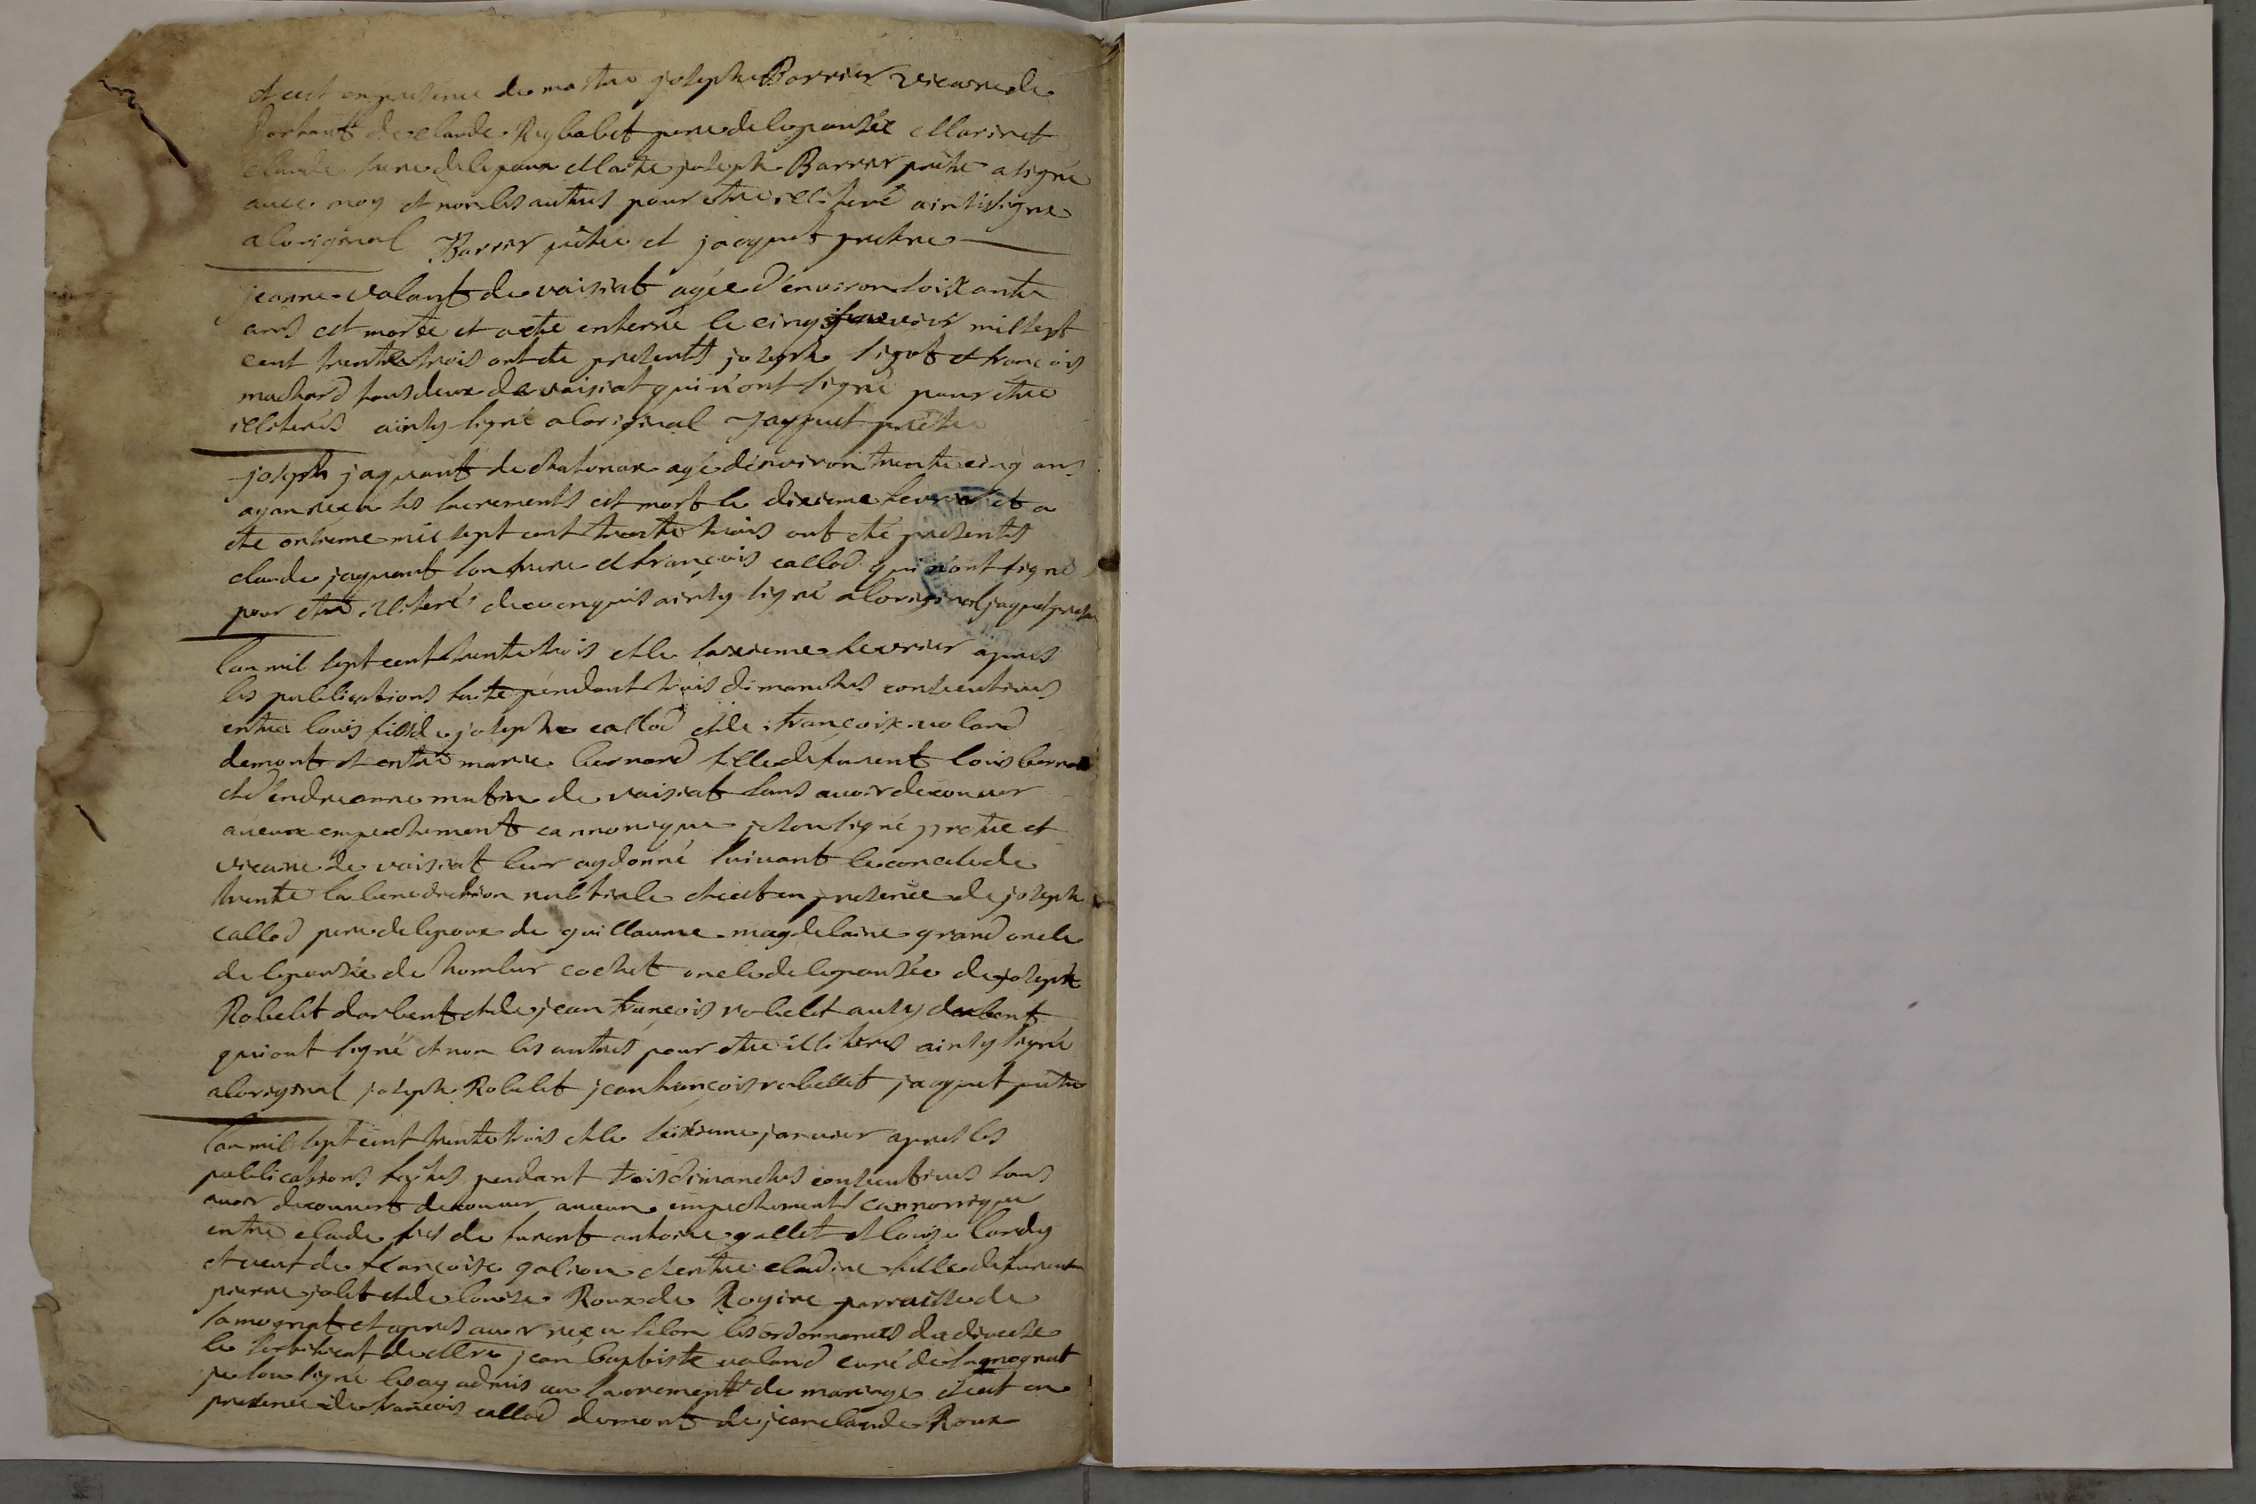 et cest en presence de mastre joseph Barrier vicaire de
dortant de claude Reybabet pere de lepousée Marinet
claude frere de lepoux Maitre joseph Barrier prêtre a signé
avec moy et non les autres pour être illiteré ainsi signé
a loriginal Barrier prêtre et jacquet prêtre
jeanne valant de vaisiat agée d'environ soixante
ans est morte et a eté enterré le cinq fevrier mil sept
cent trente trois ont été presents joseph sigot et francois
muchard tous deux de vaisiat qui n'ont signé pour être
illiterés ainsy signé a loriginal Jacquet prêtre
joseph jaquant de chatonax agé d'environ trente cinq ans
ayan reçu les sacrements est mort le dixieme fevrier et a
été onsieme mil sept cent trente trois ont été presents
claude jaquant son frere et françois callod qui n'ont signé
pour être illiteré de ce enquis ainsy signé a loriginal jaquet pretre
lan mil sept cent trente trois et le saxieme fevrier apres
les publications faite pendant trois dimanches consecutives
entre louis fils de joseph callod et de françoise voland
demont et entre marie bernard fille de furent louis bernard
et d'endreanne mutin de vaisiat sans avoir decouver
aucune empechement cannonique je sousigné pretre et
vicaire de vaisiat leur ay donné suivant le concile de
trente la benediction nubtiale et cest en presence de joseph
callod pere de lepoux de guillaume magdelaine grand oncle
de lepousée de humber cochet oncle de lepousée de joseph
Robelet darbent et de jean françois robelet aussy darbent
qui ont signé et non les autres pour être illiterés ainsy signé
a loriginal joseph Robelet jean françois robellet jacquet prêtre
lan mil sept cent trente trois et le seixieme janvier apres les
publications faites pendant trois dimanches consecutives sans
avoir decouvert decouver aucun empechement cannonique
entre claude fils de furent antoine gallet et louise lardy
et veuf de françoise galion et entre cladine fille de furent
pierre jolet et de louise Roux de Rogire parroisse de
samognat et apres avoir reçu selon les ordonnances du diocese
le sertificat de Mre jean baptiste valand curé de samognat
je sousigné les ay admis au sacrement de mariage et cest en
presence de francois callod demont de jean claude Roux